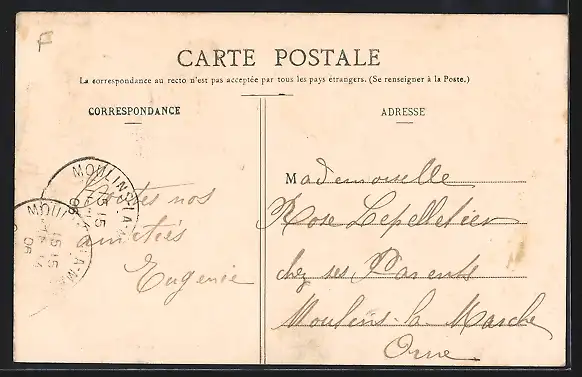 F
CARTE POSTALE
La correspondance au recto n'est pas acceptée par tous les pays étrangers. (Se renseigner à la Poste.)
CORRESPONDANCE
Toutes nos
amitiés
Eugenie
ADRESSE
Mademoiselle
Rose Lepelletier
chez ses Parents
Moulins-la-Marche
Orne
MOULINS-LA-M
15 15
06
MOU LA-MA
15 15
06